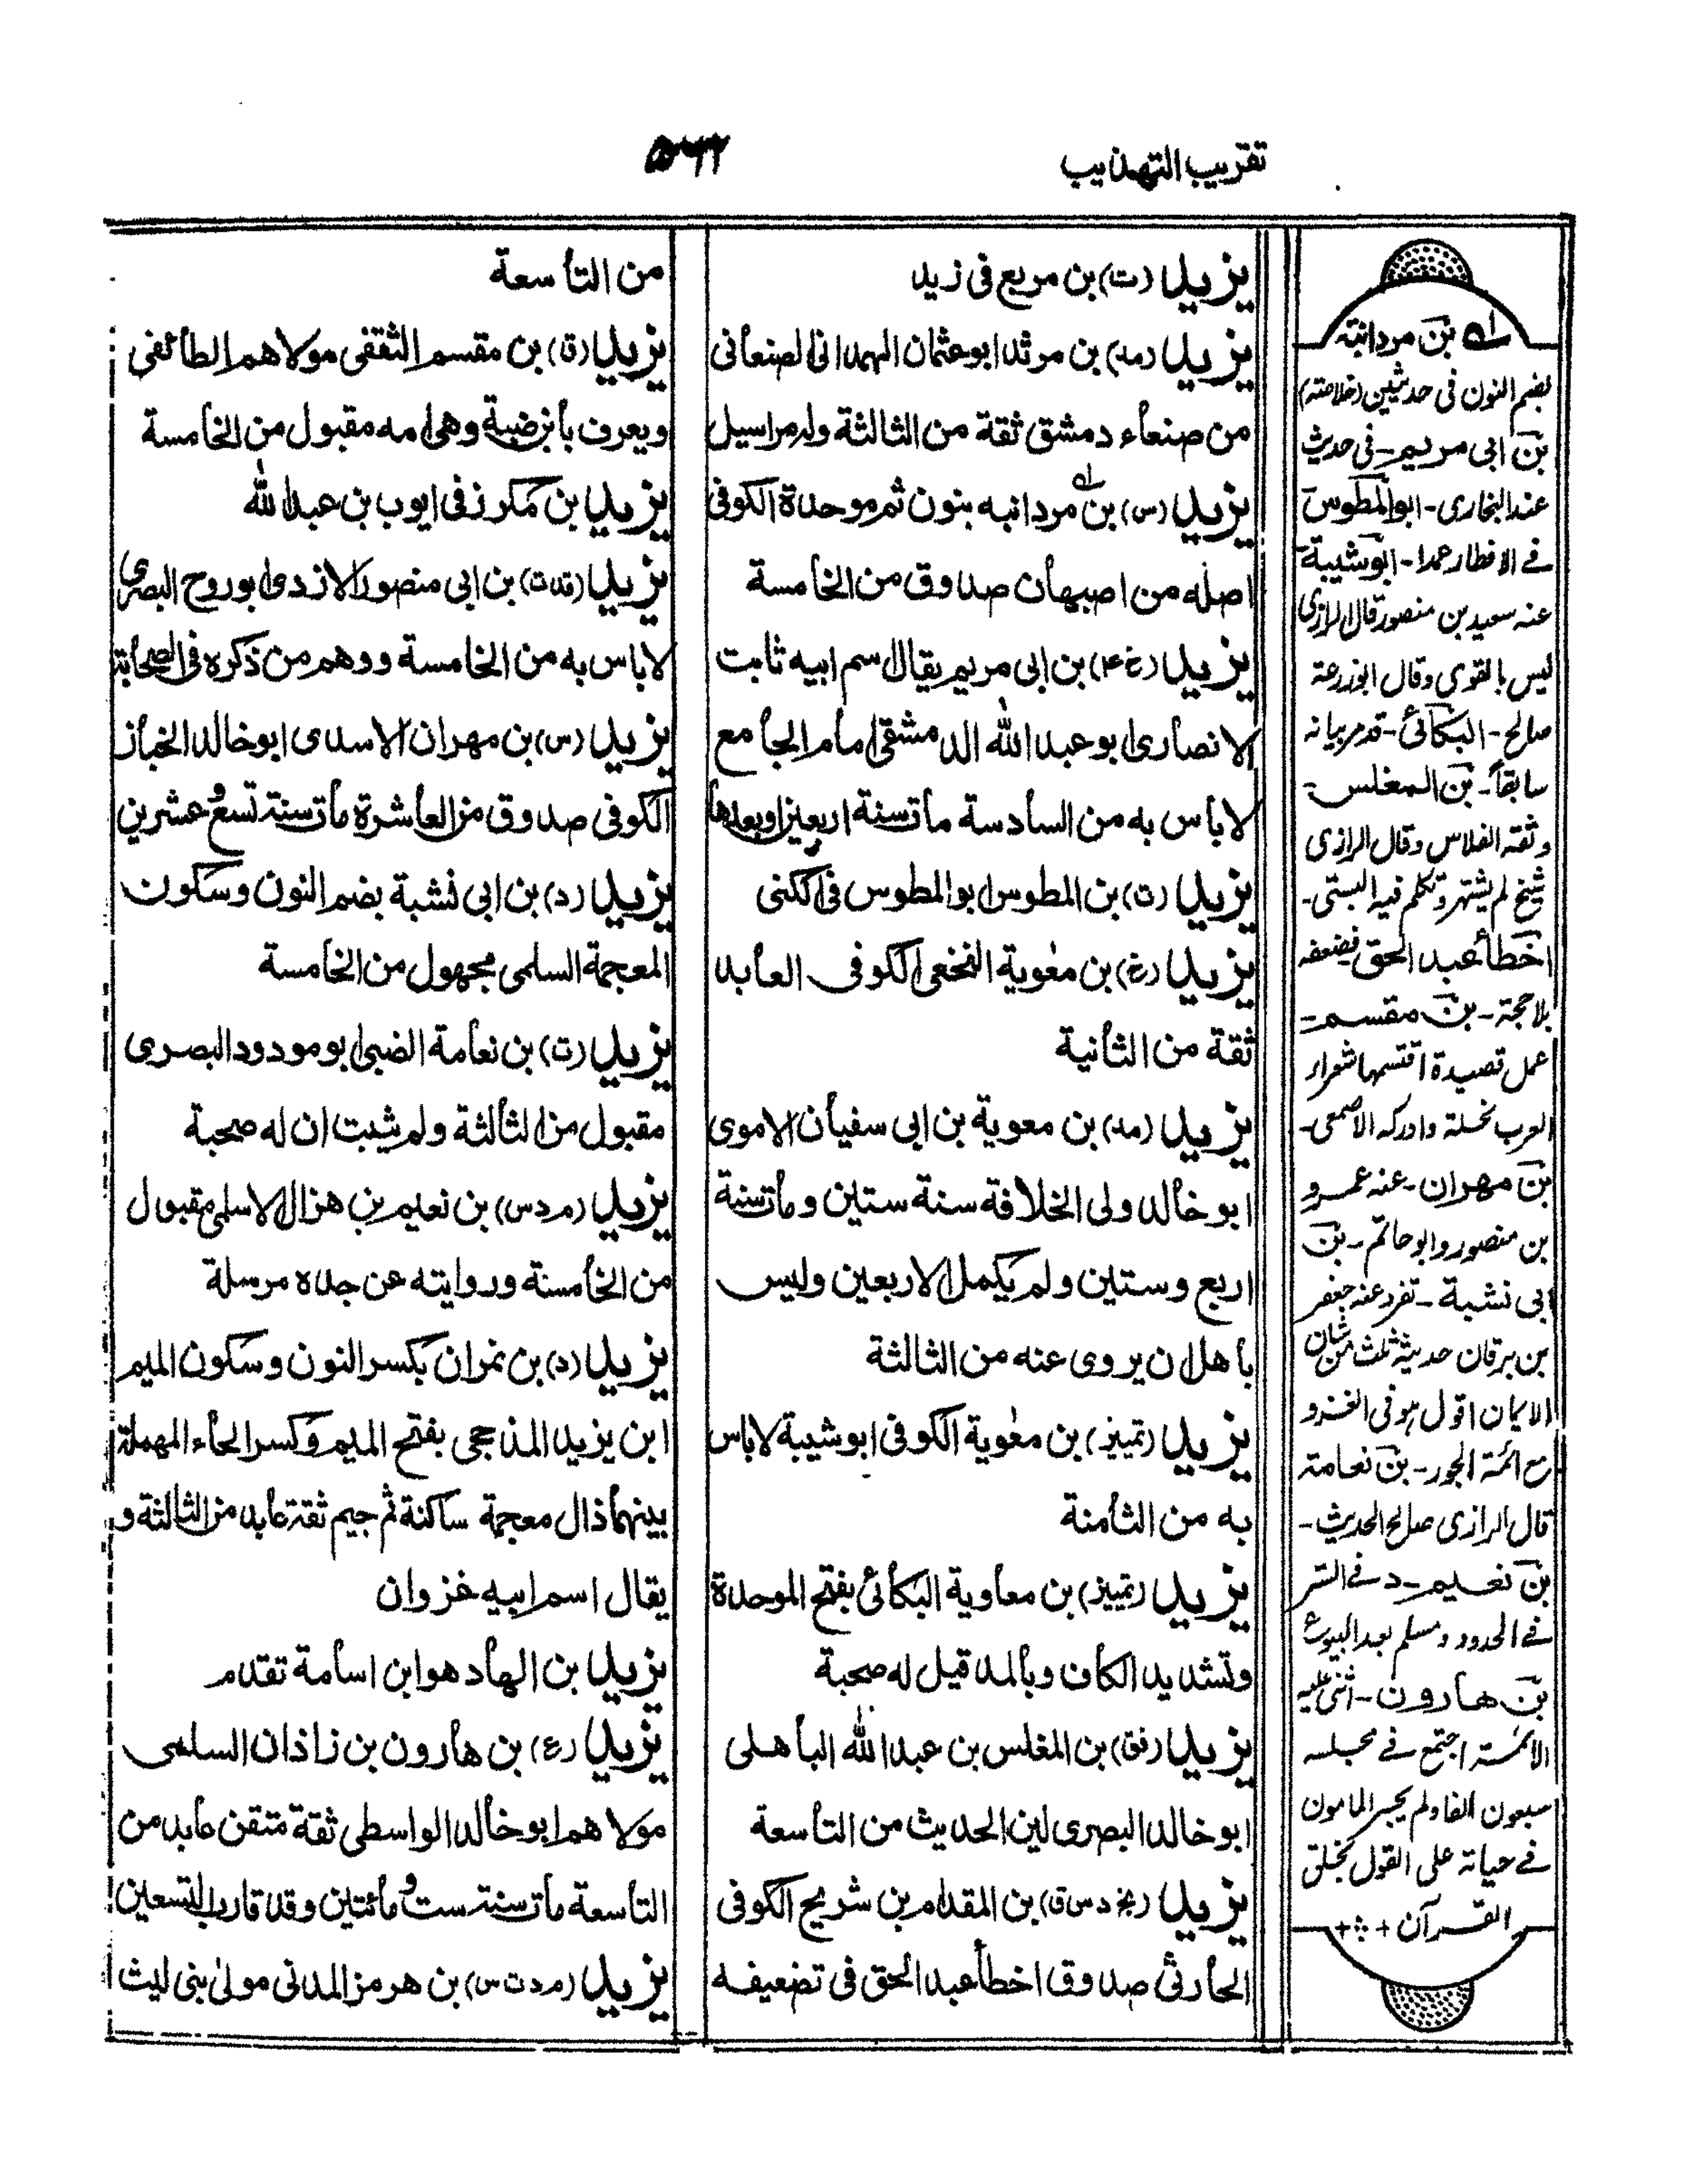 تقريب التهذيب
يزيد (ت) بن مربع فى زيد
يزيد (مد) بن مرثد ابوعثمان الهمدانى الصنعانى
من صنعاء دمشق ثقة من الثالثة وله مراسيل
يزيد (س) بن مردانبه بنون ثم موحدة الكوفى
اصله من اصبهان صدوق من الخامسة
يزيد (خ ۴) بن ابى مريم يقال اسم ابيه ثابت
الانصارى ابو عبد الله الدمشقى امام الجامع
لاباس به من السادسة مات سنة اربعين اوبعدها
يزيد (ت) بن المطوس ابوالمطوس فى الكنى
يزيد (خ) بن معٰوية النخعى الكوفى العابد
ثقة من الثانية
يزيد (مد) بن معوية بن ابى سفيان الاموى
ابوخالد ولى الخلافة سنة ستين ومات سنة
اربع وستين ولم يكمل الاربعين وليس
باهل ان يروى عنه من الثالثة
يزيد (تمييز) بن معٰوية الكوفى ابوشيبة لاباس
به من الثامنة
يزيد (تمييز) بن معاوية البكائى بفتح الموحدة
وتشديد الكاف وبالمد قيل له صحبة
يزيد (فق) بن المغلس بن عبد الله الباهلى
ابوخالد البصرى لين الحديث من التاسعة
يزيد (بخ د س ق) بن المقدام بن شريح الكوفى
الحارثى صدوق اخطأ عبد الحق فى تضعيفه
من التاسعة
يزيد (ق) بن مقسم الثقفى مولاهم الطائفى
ويعرف بابن ضبة وهى امه مقبول من الخامسة
يزيد بن مكرز فى ايوب بن عبد الله
يزيد (قدت) بن ابى منصور الازدى ابوروح البصرى
لاباس به من الخامسة ووهم من ذكره فى الصحابة
يزيد (س) بن مهران الاسدى ابوخالد الخباز
الكوفى صدوق من العاشرة مات سنة تسع وعشرين
يزيد (د) بن ابى نشبة بضم النون وسكون
المعجمة السلمى مجهول من الخامسة
يزيد (ت) بن نعامة الضبى ابومودود البصرى
مقبول من الثالثة ولم يثبت ان له صحبة
يزيد (م د س) بن نعيم بن هزال الاسلمى مقبول
من الخامسة وروايته عن جده مرسلة
يزيد (د) بن نمران بكسر النون وسكون الميم
ابن يزيد المذحجى بفتح الميم وكسر الحاء المهملة
بينهما ذال معجمة ساكنة ثم جيم ثقة عابد من الثالثة و
يقال اسم ابيه غزوان
يزيد بن الهاد هو ابن اسامة تقدم
يزيد (ع) بن هارون بن زاذان السلمى
مولاهم ابوخالد الواسطى ثقة متقن عابد من
التاسعة مات سنة ست ومائتين وقد قارب التسعين
يزيد (م د ت س) بن هرمز المدنى مولى بنى ليث
بن مردانبة
بضم النون فى حديثين (خلاصة)
بن ابى مريم - فى حديث
عند البخارى - ابو المطوس
فى الافطار عمدا - ابوشيبة
عنه سعيد بن منصور قال الرازى
ليس بالقوى وقال ابوزرعة
صالح - البكائى - قدم بيانه
سابقاً - بن المغلس -
وثقه الفلاس وقال الرازى
شيخ لم يشتهر وتكلم فيه البستى -
اخطأ عبد الحق فضعفه
بلا حجة - بن مقسم -
عمل قصيدة اقتسمها شعراء
العرب نخسلة وادركه الاصمعى -
بن مهران - عنه عمرو
بن منصور وابوحاتم - بن
ابى نشبة - تفرد عنه جعفر
بن برقان حديثه ثلث من شان
الايمان اقول هو فى الغزو
مع ائمة الجور - بن نعامة
قال الرازى صالح الحديث -
بن نعيم - د فى الستر
فى الحدود ومسلم بعد البيوع
بن هارون - اثنى عليه
الائمة اجتمع فى مجلسه
سبعون الفا ولم يجسر المامون
فى حياته على القول بخلق
القرآن